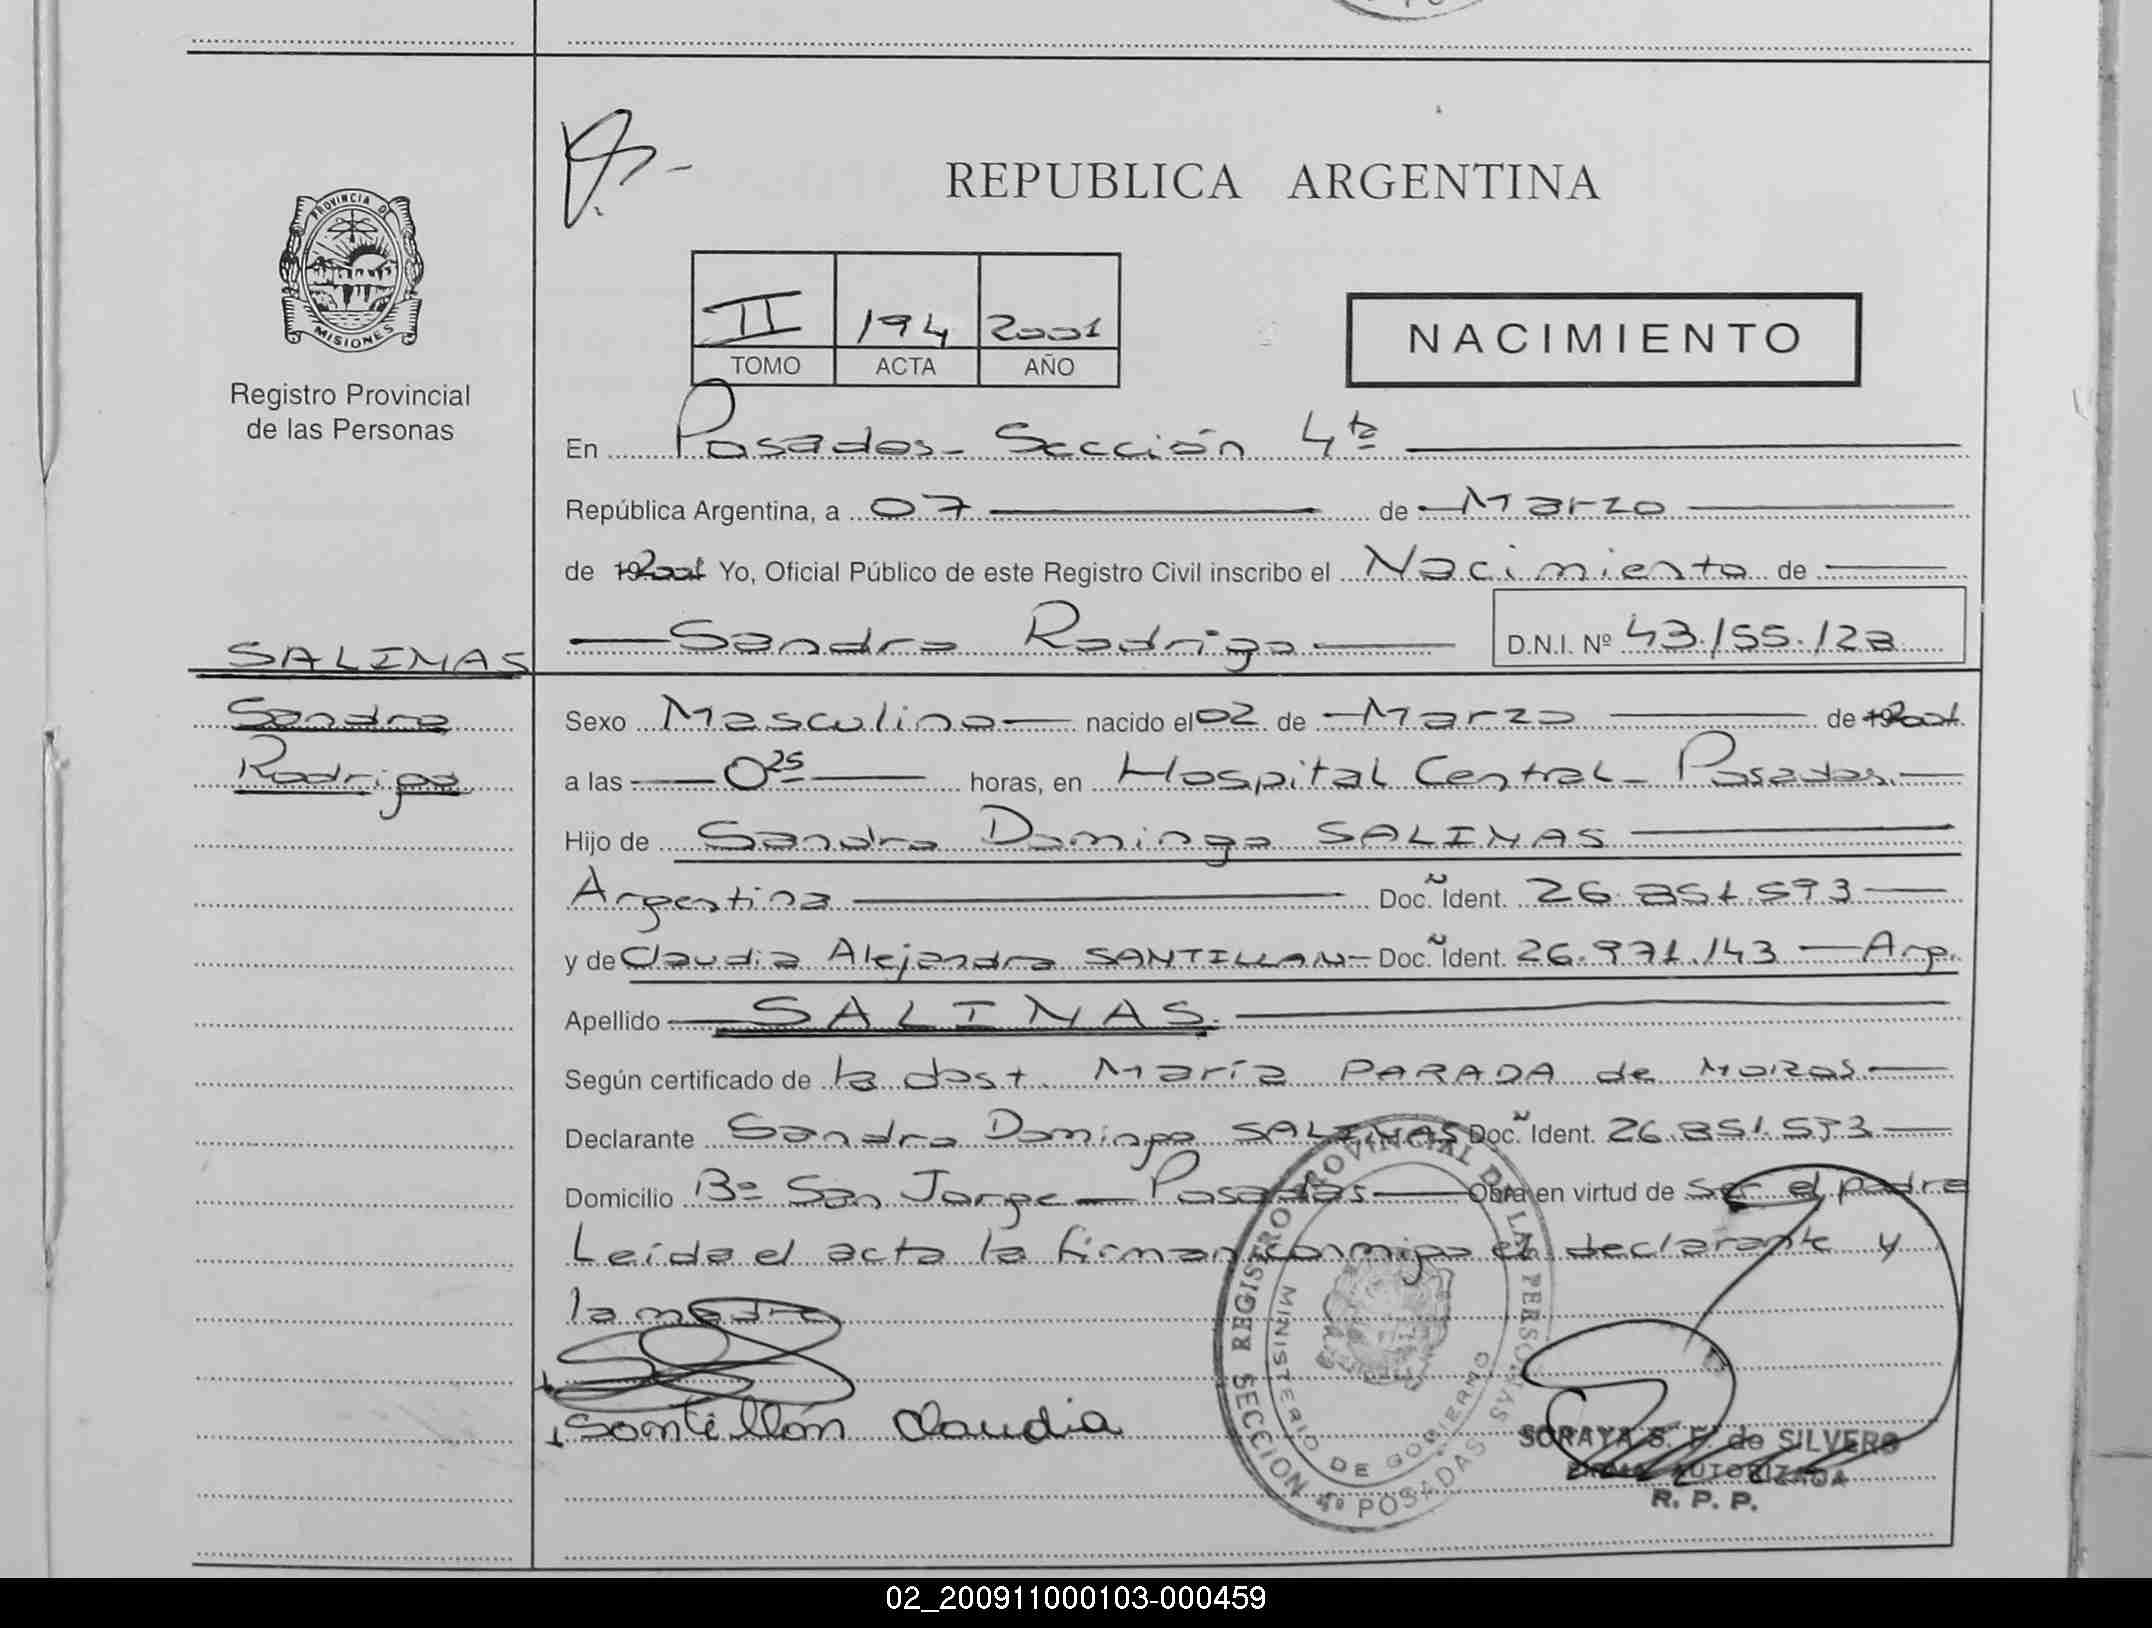 REPUBLICA ARGENTINA
PROVINCIA DE
MISIONES
Registro Provincial
de las Personas
II 194 2001
TOMO ACTA AÑO
NACIMIENTO
En Posadas - Sección 4ta
República Argentina, a 07 de Marzo
de 2001 Yo, Oficial Público de este Registro Civil inscribo el Nacimiento de
Sandro Rodrigo D.N.I. Nº 43.155.123
SALINAS
Sandro
Rodrigo
Sexo Masculino nacido el 02 de Marzo de 2001
a las 0 25 horas, en Hospital Central - Posadas.
Hijo de Sandro Domingo SALINAS
Argentina Doc. Ident. 26.851.593
y de Claudia Alejandra SANTILLAN - Doc. Ident. 26.971.143 - Arg.
Apellido SALINAS.
Según certificado de la obst. María PARADA de
Declarante Sandro Domingo SALINAS Doc. Ident. 26.851.593
Domicilio Bº San Jorge - Posadas Obra en virtud de ser el padre
Leída el acta la firman conmigo el declarante y
la madre
Santillán Claudia
REGISTRO PROVINCIAL DE LAS PERSONAS
MINISTERIO DE GOBIERNO
SECCION 4º POSADAS
SORAYA S. F. de SILVERO
FIRMA AUTORIZADA
R. P. P.
02_200911000103-000459